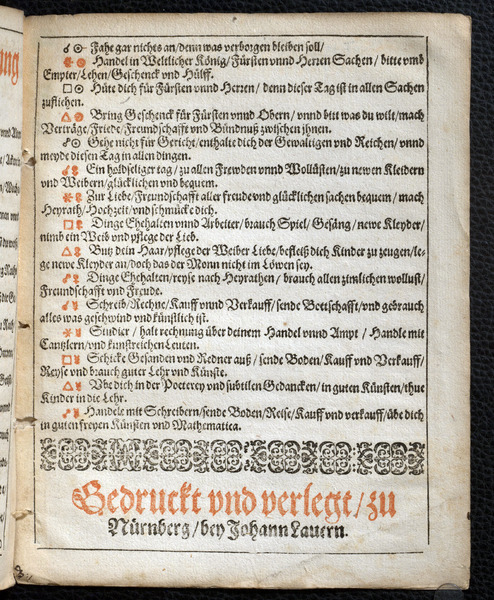 ☌☉ Fahe gar nichts an/denn was verborgen bleiben soll/
⚹☉ Handel in Weltlicher König/Fürsten vnnd Herren Sachen / bitte vmb
Empter/Lehen/Geschenck vnd Hülff.
□☉ Hüte dich für Fürsten vnnd Herren / denn dieser Tag ist in allen Sachen
zufliehen.
△☉ Bring Geschenck für Fürsten vnnd Obern / vnnd bitt was du wilt/mach
Verträge/Friede/Freundschafft vnd Bündnuß zwischen jhnen.
☍☉ Gehe nicht für Gericht/enthalte dich der Gewaltigen vnd Reichen/vnnd
meyde diesen Tag in allen dingen.
☌♀ Ein holdseliger tag/zu allen Frewden vnnd Wollüsten/zu newen Kleidern
vnd Weibern/glücklichen vnd bequem.
⚹♀ Zur Liebe/Freundschafft aller freude vnd glücklichen sachen bequem / mach
Heyrath/Hochzeit/vnd schmücke dich.
□♀ Dinge Ehehalten vnnd Arbeiter/brauch Spiel/Gesäng/newe Kleyder/
nimb ein Weib vnd pflege der Lieb.
△♀ Butz dein Haar/pflege der Weiber Liebe/befleiß dich Kinder zu zeugen/le-
ge newe Kleyder an/doch das der Monn nicht im Löwen sey.
☍♀ Dinge Ehehalten/reyse nach Heyrathen / brauch allen zimlichen wollust/
Freundschafft vnd Freude.
☌☿ Schreib/Rechne/Kauff vnnd Verkauff/sende Bottschafft/vnd gebrauch
alles was geschwind vnd künstlich ist.
⚹☿ Studier / halt rechnung über deinem Handel vnnd Ampt / Handle mit
Cantzlern/vnd kunstreichen Leuten.
□☿ Schicke Gesanden vnd Redner auß / sende Boden/Kauff vnd Verkauff/
Reyse vnd brauch guter Lehr vnd Künste.
△☿ Vbe dich in der Poeterey vnd subtilen Gedancken/in guten Künsten/thue
Kinder in die Lehr.
☍☿ Handele mit Schreibern/sende Boden/Reise/Kauff vnd verkauff/übe dich
in guten freyen Künsten vnd Mathematica.
Gedruckt vnd verlegt/zu
Nürnberg/bey Johann Lauern.